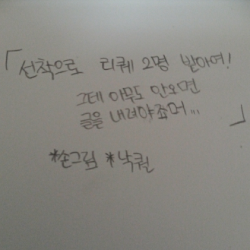 「선착으로 리퀘 2명 받아여!
그데 아무도 안오면
글을 내려야죠머...
*손그림 *낙퀄